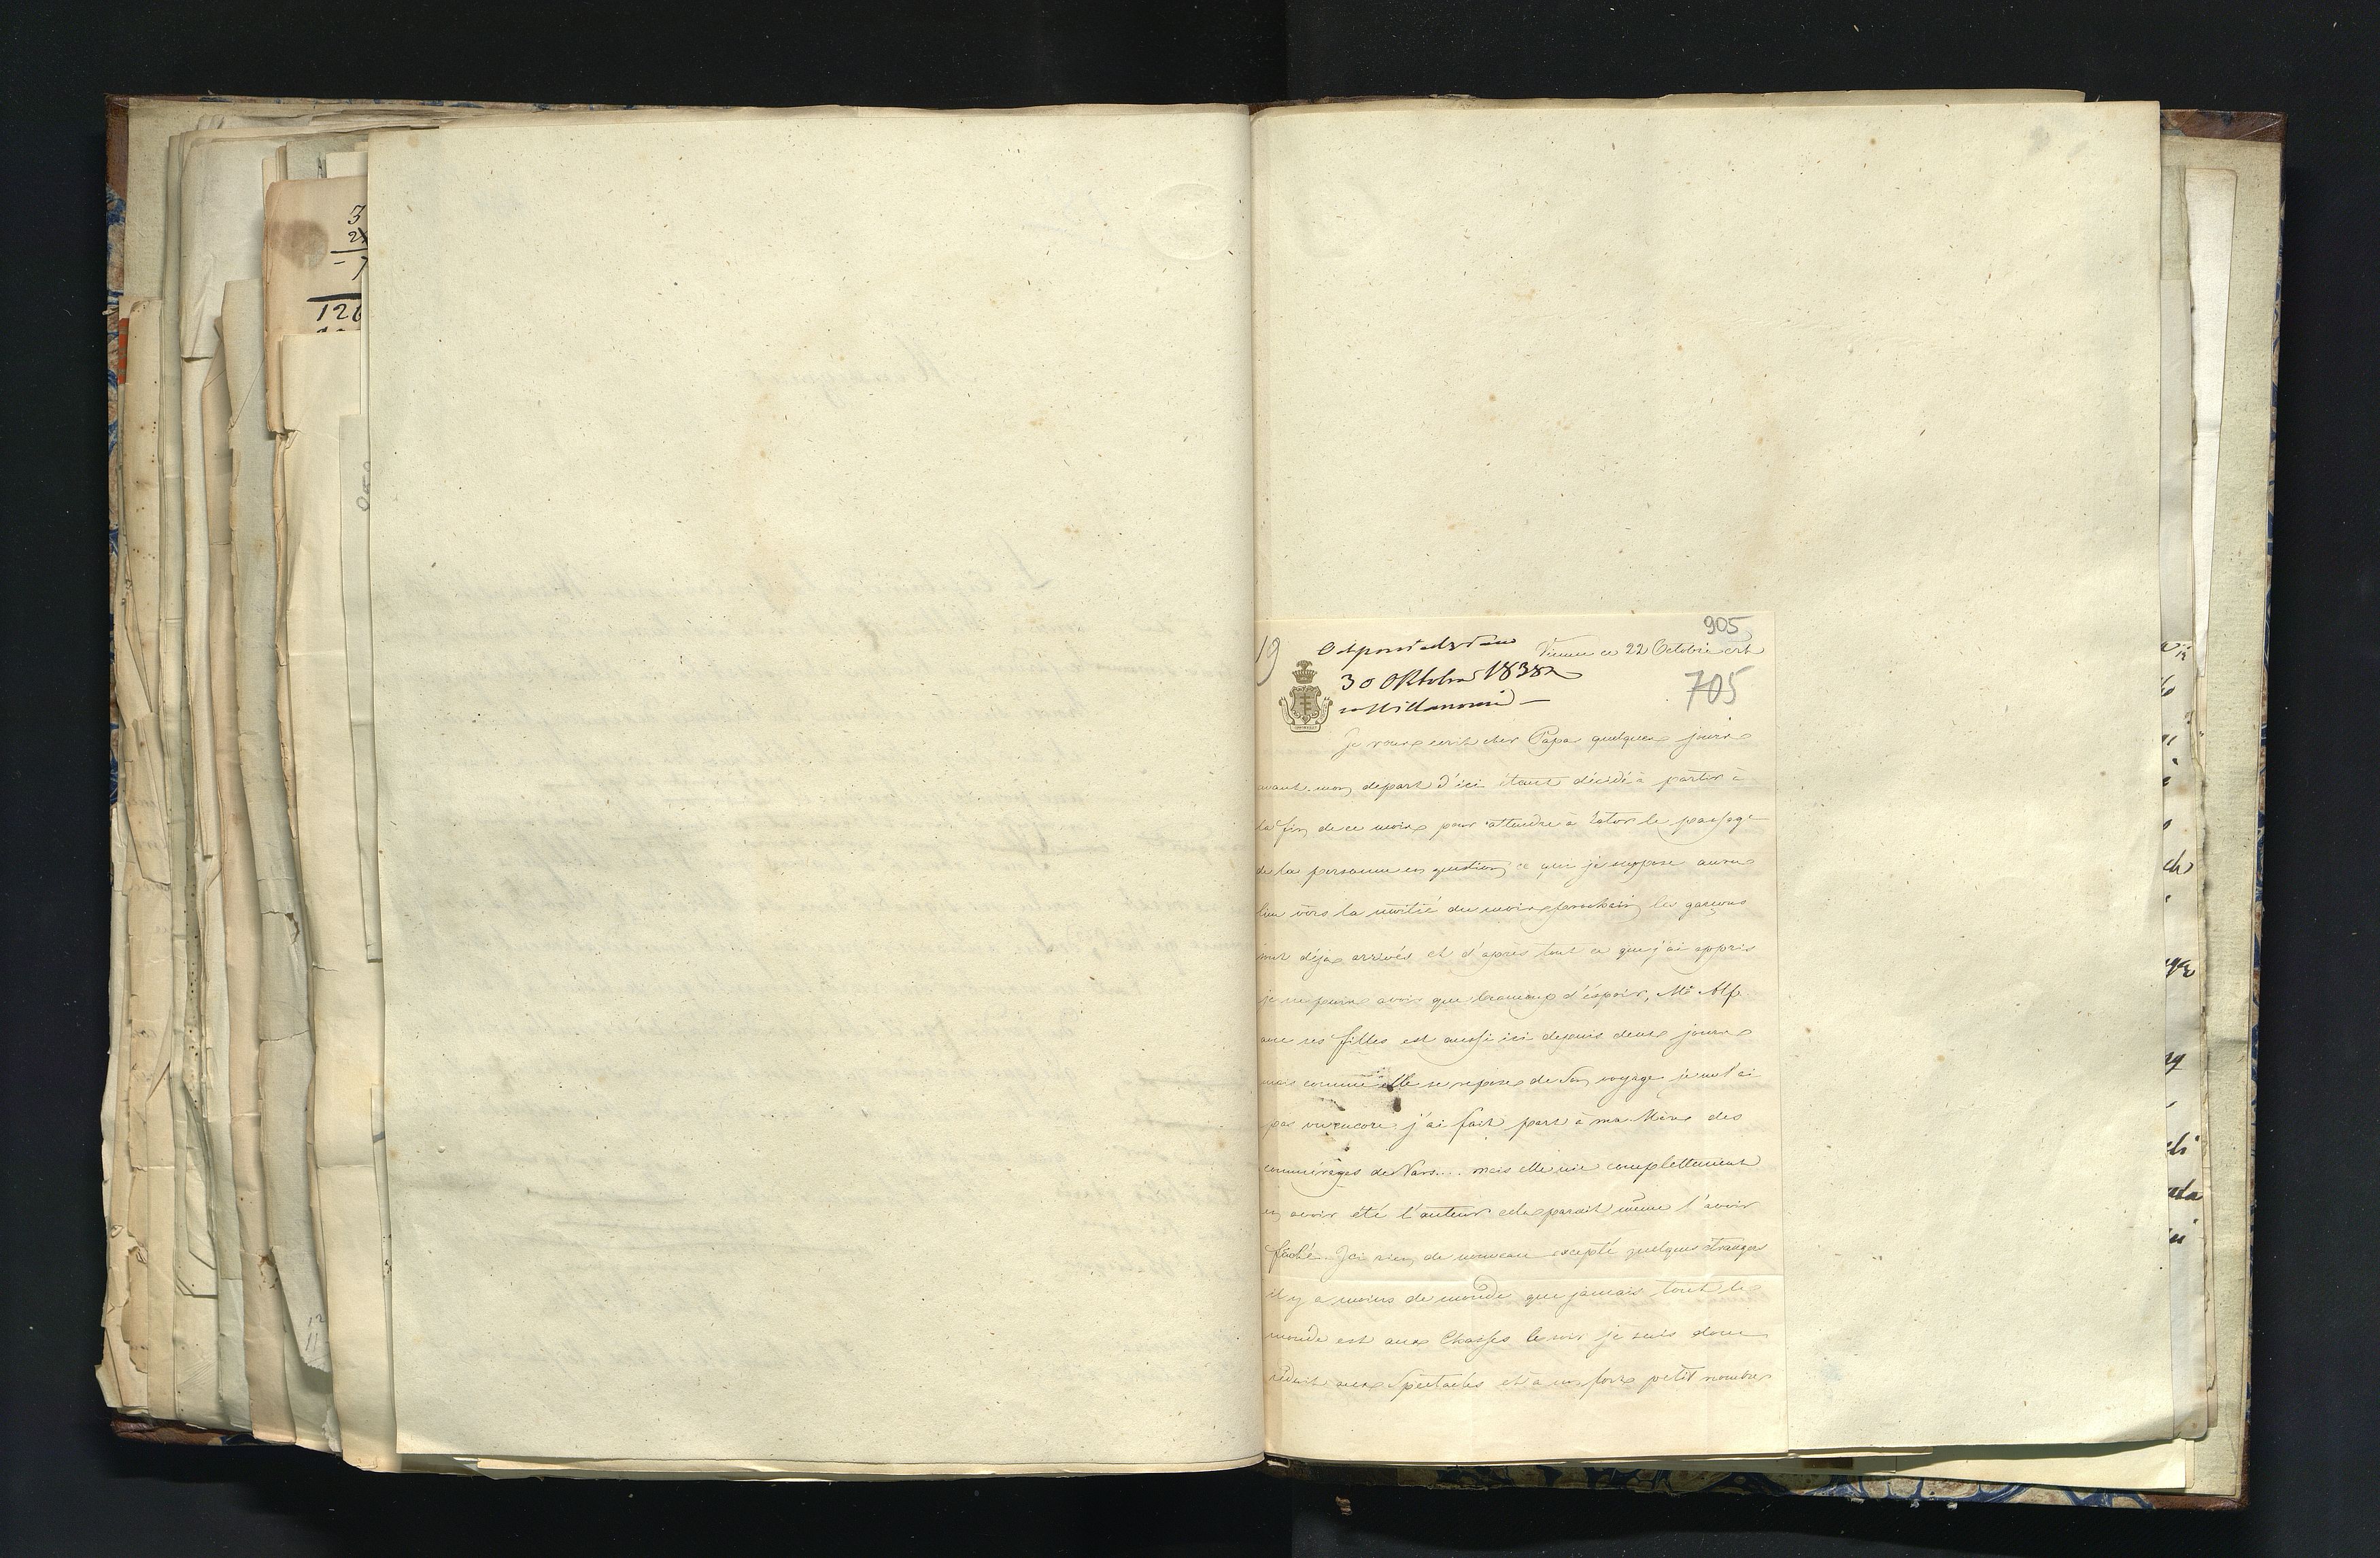 3
2
- 7
126
905
19
Odpowiedziano
Vienne ce 22 Octobre
30 Oktobra 1838
w Willanowie —
705
Je vous ecrit cher Papa quelques jours
avant mon départ d'ici étant décidé à partir à
la fin de ce mois pour attendre à Zator le passage
de la personne en question ce que je suppose aura
lieu vers la moitié du mois prochain, les garçons
sont déja arrivés et d'après tout ce que j'ai appris
je ne puis avoir que beaucoup d'éspoir, Me Alf.
avec ses filles est aussi ici depuis deux jours
mais comme elle se repose de son voyage je ne l'ai
pas vu encore, j'ai fait part à ma Mère des
commérages de Vars.... mais elle nie complettement
en avoir été l'auteur cela parait même l'avoir
faché. Ici rien de nouveau excepté quelques étrangers
il y a moins de monde que jamais tout le
monde est aux Chasses le soir je suis donc
réduit aux Spectacles et à un fort petit nombre